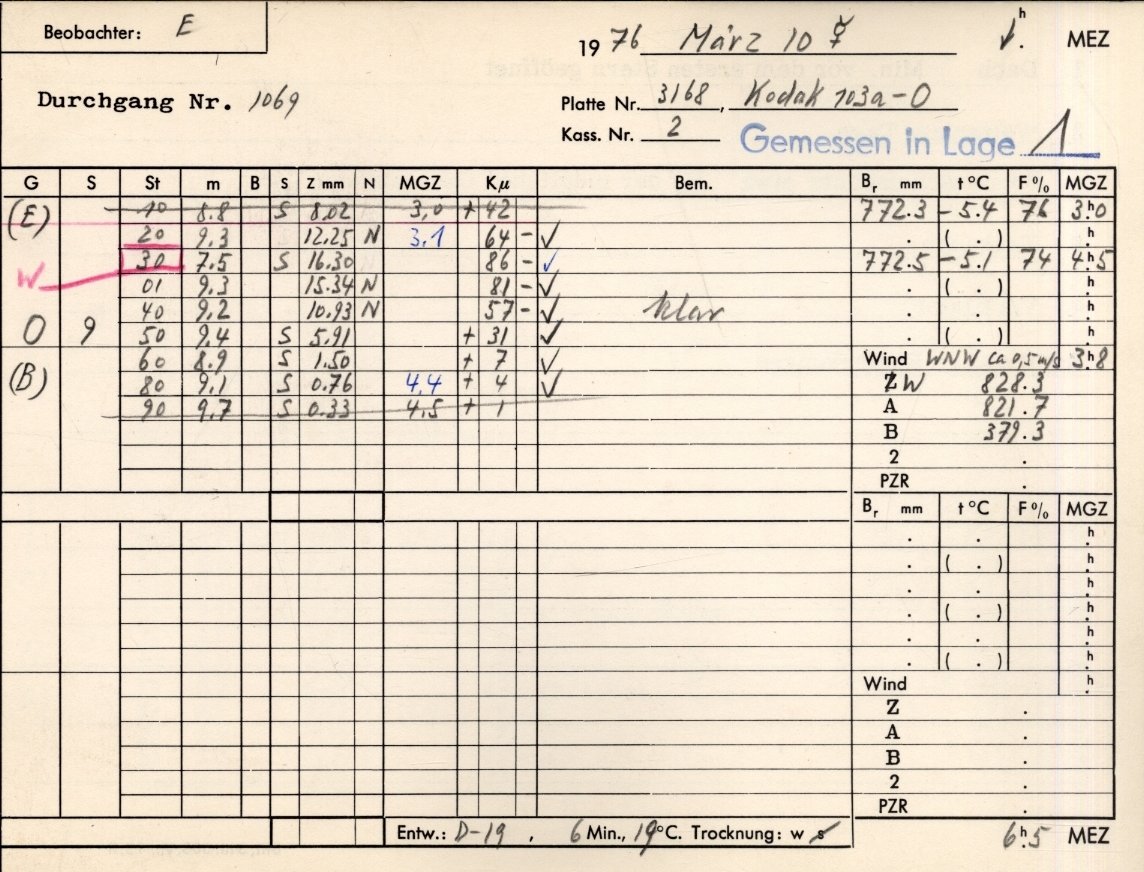 Beobachter: E
1976 März 10 ☿ h. MEZ
Durchgang Nr. 1069
Platte Nr. 3168, Kodak 103a-O
Kass. Nr. 2 Gemessen in Lage 1
G S St m B S Z mm N MGZ Kμ Bem. Br mm t °C F% MGZ
(E) 10 8.8 S 8.02 3,0 + 42 772.3 - 5.4 76 3h.0
20 9.3 12.25 N 3,1 64 - ✓ . ( . ) h.
W 30 7.5 S 16.30 86 - ✓ 772.5 - 5.1 74 4h.5
01 9.3 15.34 N 81 - ✓ . ( . ) h.
40 9.2 10.93 N 57 - ✓ klar . . h.
O 9 50 9.4 S 5.91 + 31 ✓ . ( . ) h.
60 8.9 S 1.50 + 7 ✓ Wind WNW ca 0,5 m/s 3h.8
(B) 80 9.1 S 0.76 4,4 + 4 ✓ Z W 828.3
90 9.7 S 0.33 4,5 + 1 A 821.7
B 379.3
2 .
PZR .
Br mm t °C F% MGZ
. . h.
. ( . ) h.
. . h.
. ( . ) h.
. . h.
. ( . ) h.
Wind h.
Z .
A .
B .
2 .
PZR .
Entw.: D-19 , 6 Min., 19°C. Trocknung: w s 6h.5 MEZ